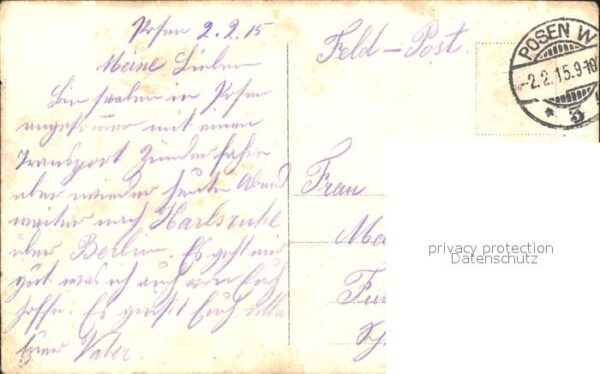 Posen 2.2.15
Meine Lieben
Bin soeben in Posen
angekommen mit einem
Transport Zünder fahre
aber wieder heute Abend
weiter nach Karlsruhe
über Berlin. Es geht mir
gut was ich auch von Euch
hoffe. Es grüsst Euch alle
Euer Vater
Feld-Post.
POSEN W
-2.2.15.9-10
* 3
Frau
privacy protection
Datenschutz